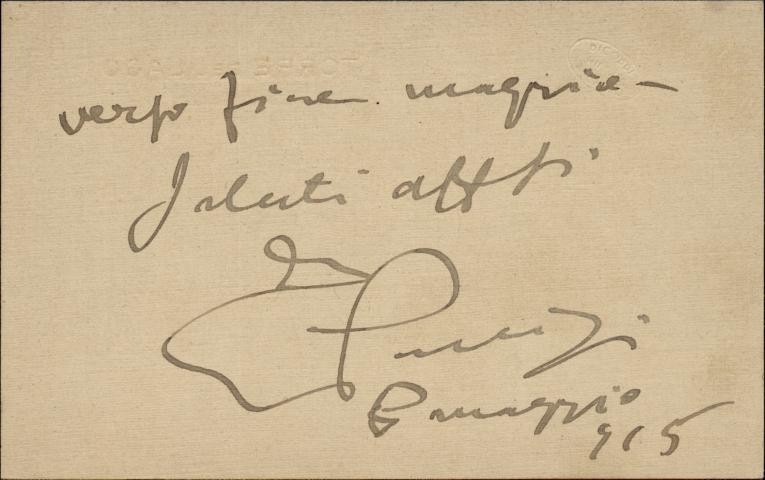 verso fine maggio –
Saluti affti
GPuccini
6 maggio
915